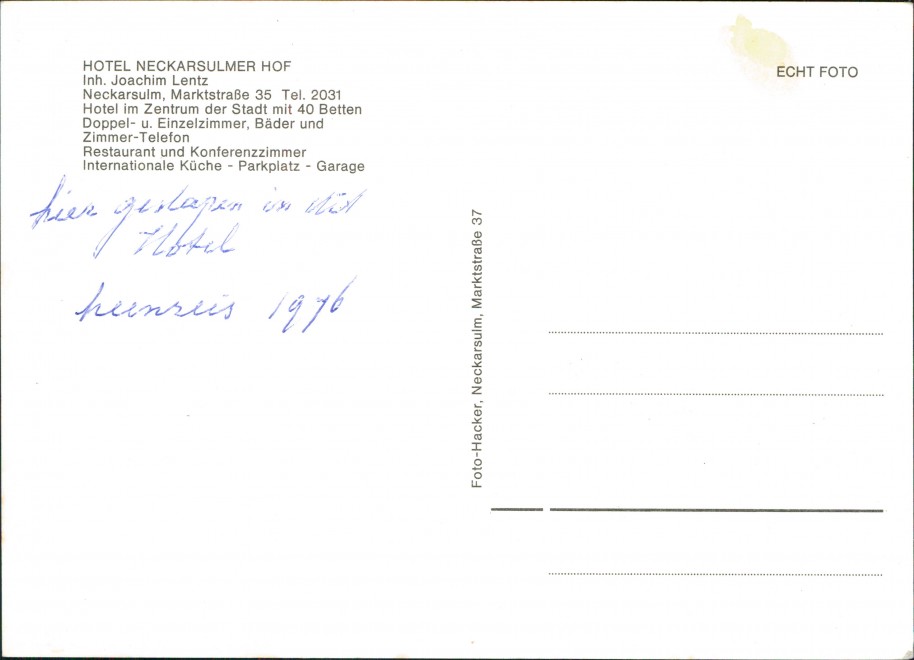 HOTEL NECKARSULMER HOF
Inh. Joachim Lentz
Neckarsulm, Marktstraße 35 Tel. 2031
Hotel im Zentrum der Stadt mit 40 Betten
Doppel- u. Einzelzimmer, Bäder und
Zimmer-Telefon
Restaurant und Konferenzzimmer
Internationale Küche - Parkplatz - Garage
hier geslapen in dit
Hotel
heenreis 1976
Foto-Hacker, Neckarsulm, Marktstraße 37
ECHT FOTO